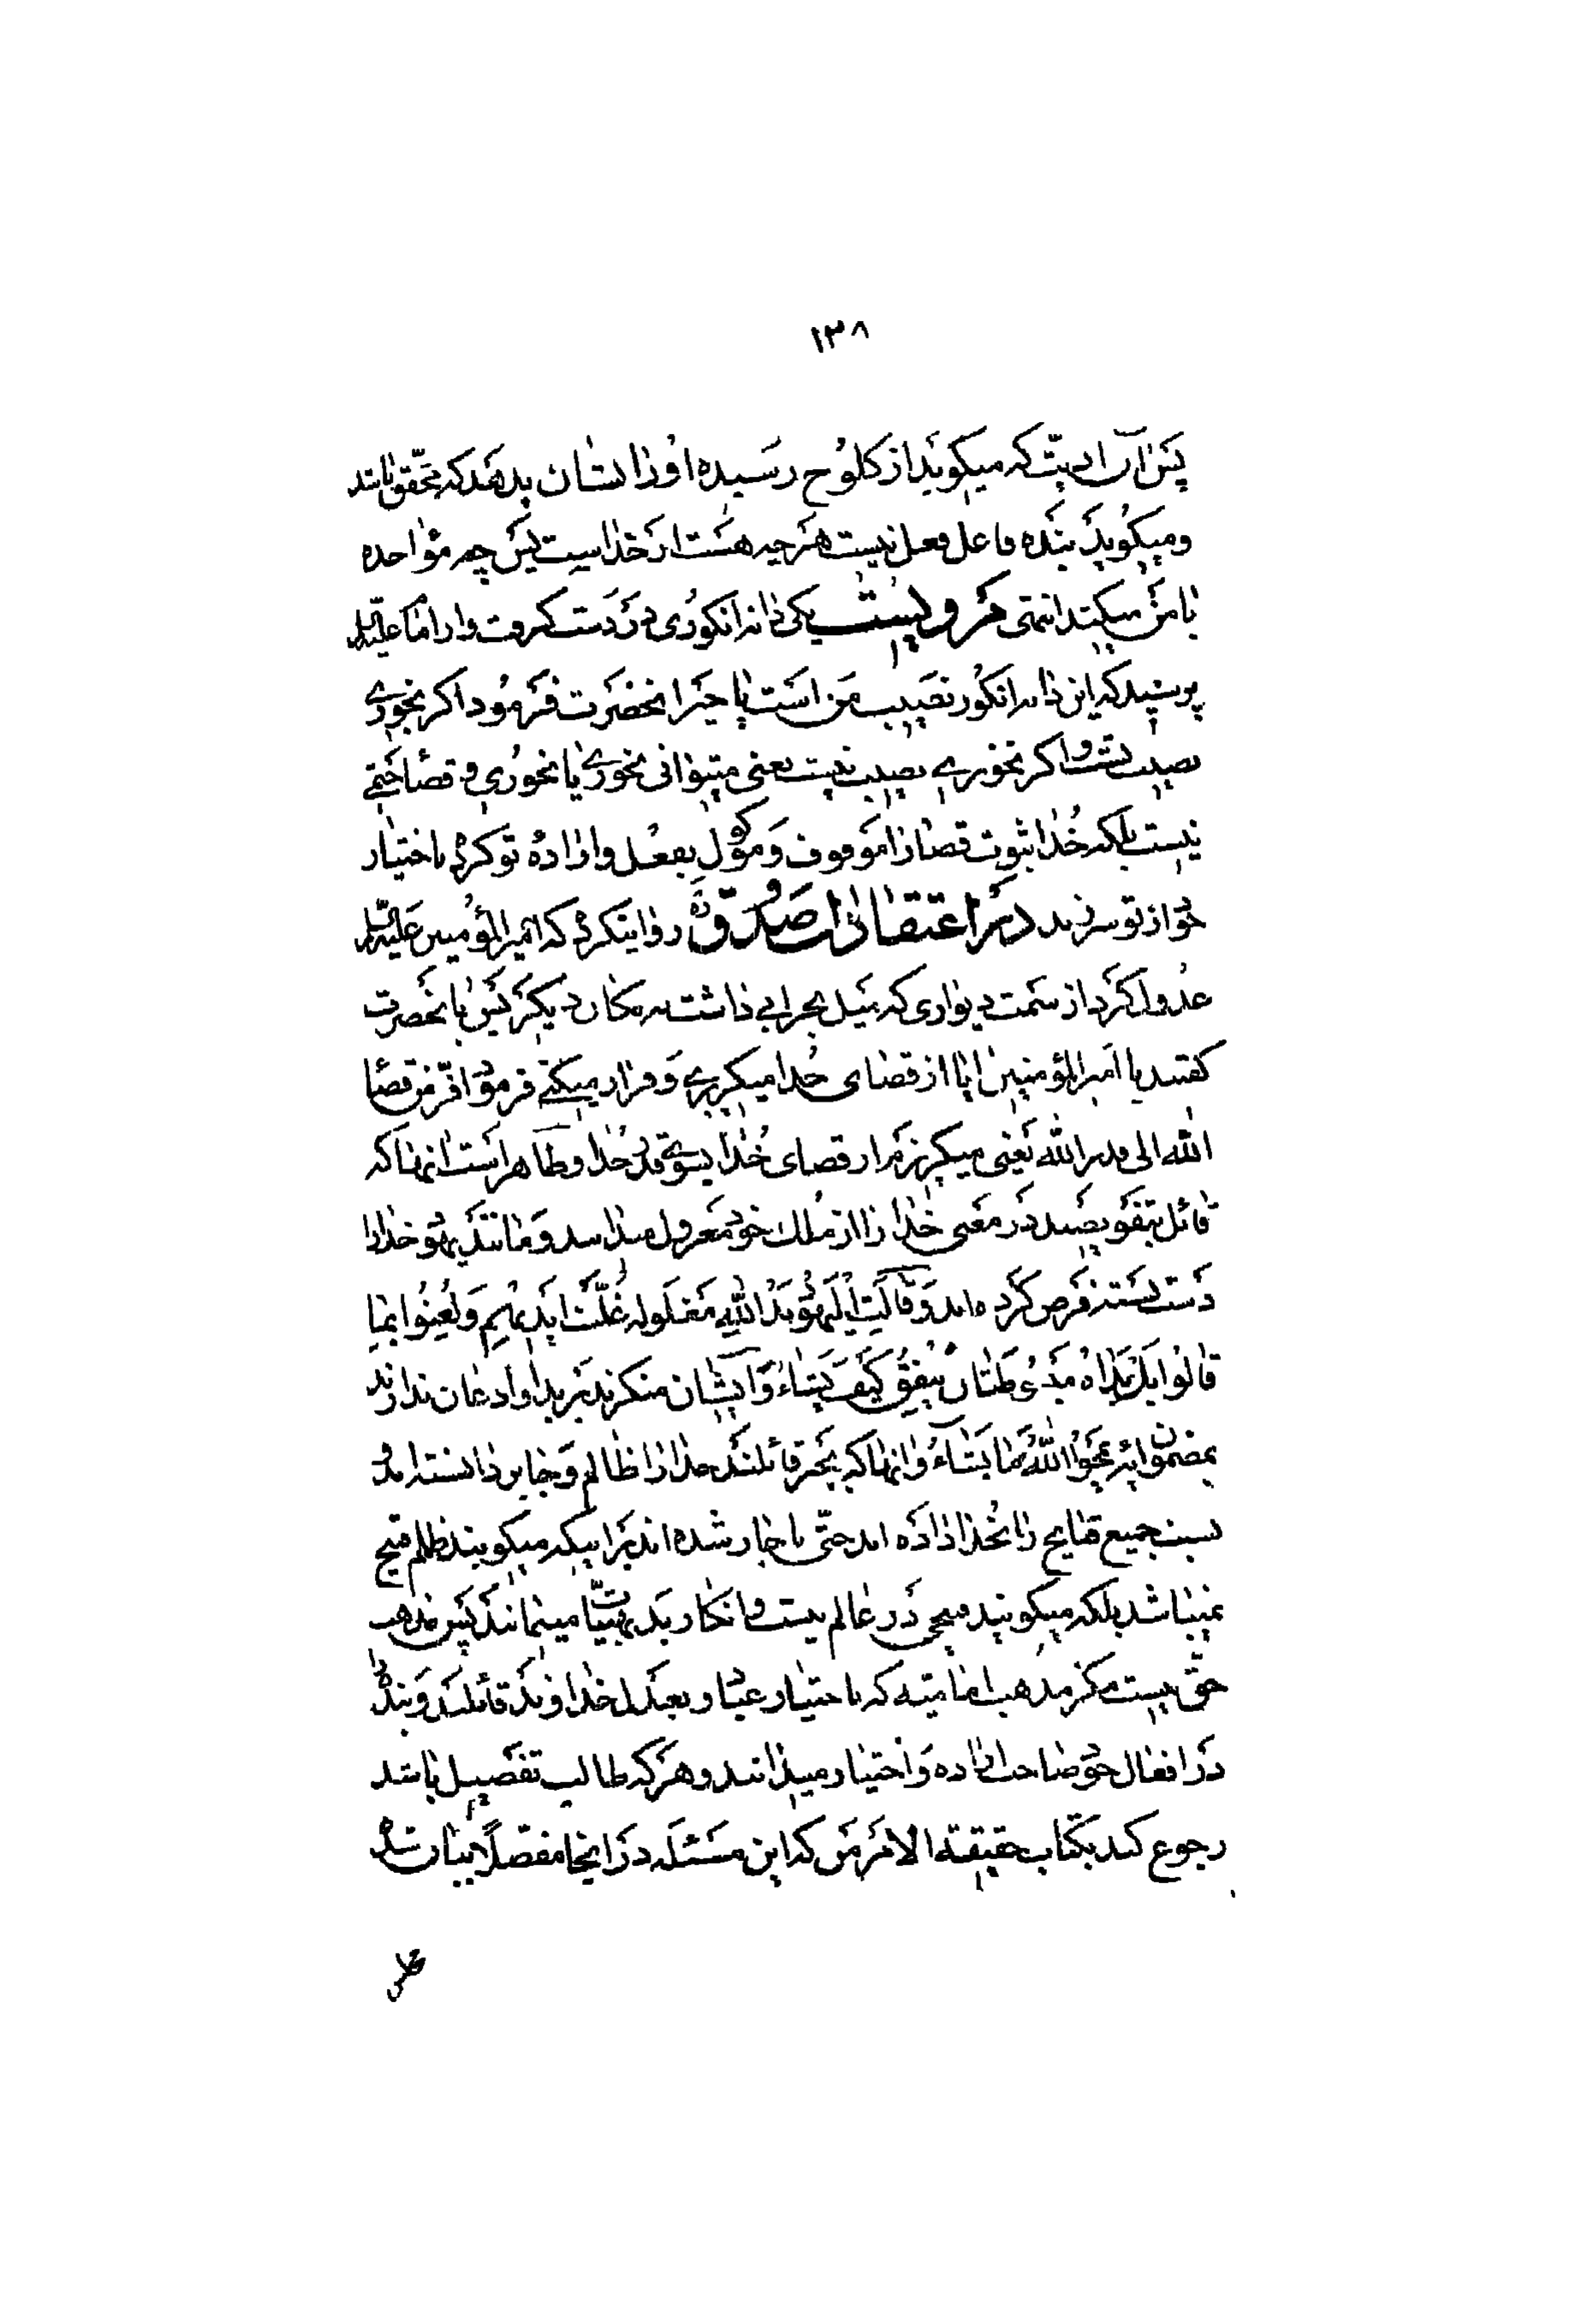 ۱۳۸
پس آن اذیت که میگوید از کلوخ رسیده او را نشان بدهد که محقق باشد
و میگوید بنده فاعل فعل نیست هرچه هست از خداست پس چه مؤاخذه
با من میکنید انتهی مرویست یکی دانه انگوری در دست گرفت و از امام علیه السلام
پرسید که این دانه انگور نصیب من است یا خیر انحضرت فرمود اگر بخوری
نصیب تست و اگر نخوری نصیب نیست یعنی میتوانی بخوری یا نخوری و قضا حتمی
نیست بلکه خدا ثبوت قضا را موقوف و موکول بفعل و اراده تو کرده باختیار
خود از تو سر زند در اعتقادات صدوق ره روایت کرده که امیرالمؤمنین علیه السلام
عدول کرد از سمت دیواری که میل بخرابی داشت به مکان دیگر پس بانحضرت
گفتند یا امیرالمؤمنین ایا از قضای خدا میگریزی و فرار میکنی فرمود افر من قضاء
الله الی قدر الله یعنی میگریزم از قضای خدا بسوی قدر خدا و ظاهر است انها که
قائل بتفویضند در معنی خدا را از ملک خود معزول میدانند و مانند یهود خدا را
دست بسته فرض کرده اند و قالت الیهود ید الله مغلوله غلت ایدیهم و لعنوا بما
قالوا بل یداه مبسوطتان ینفق کیف یشاء و ایشان منکرند بر بدا و اذعان ندارند
بمضمون ایه یمحو الله ما یشاء و انها که بجبر قائلند خدا را ظالم و جابر دانسته اند و
نسبت جمیع قبایح را بخدا داده اند حتی ناچار شده اند براینکه میگویند ظلم قبیح
نمیباشد بلکه میگویند قبیحی در عالم نیست و انکار بدیهیات مینمایند پس مذهب
حق نیست مگر مذهب امامیه که باختیار عباد و بعدل خداوند قائلند و بنده را
در افعال خود صاحب اراده و اختیار میدانند و هرکه طالب تفصیل باشد
رجوع کند بکتاب حقیقة الامر من که این مسئله در اینجا مفصلاً بیان شده